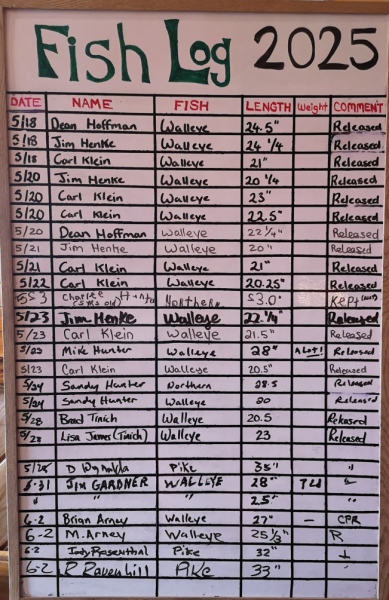 Fish Log 2025
DATE NAME FISH LENGTH Weight COMMENT
5/18 Dean Hoffman Walleye 24.5" Released
5/18 Jim Henke Walleye 24 1/4 Released
5/18 Carl Klein Walleye 21" Released
5/20 Jim Henke Walleye 20 1/4 Released
5/20 Carl Klein Walleye 23" Released
5/20 Carl Klein Walleye 22.5" Released
5/20 Dean Hoffman Walleye 22 1/4" Released
5/21 Jim Henke Walleye 20" Released
5/21 Carl Klein Walleye 21" Released
5/22 Carl Klein Walleye 20.25" Released
Charlie Northern 53.0" Kept
5/23 Jim Henke Walleye 22.1/4" Released
5/23 Carl Klein Walleye 21.5" Released
Mike Hunter Walleye 28" A Lot! Released
5/23 Carl Klein Walleye 20.5" Released
5/24 Sandy Hunter Northern 28.5 Released
5/24 Sandy Hunter Walleye 20 Released
5/28 Brad Tinich Walleye 20.5 Released
5/28 Lisa James (Tinich) Walleye 23 Released
D Pike 35" "
JIM GARDNER WALLEYE 28"
" " " 25"
6-2 Brian Arney Walleye 27" – CPR
6-2 M. Arney Walleye R
6-2 Rosenthal Pike 32"
6-2 R Ravenhill Pike 33"